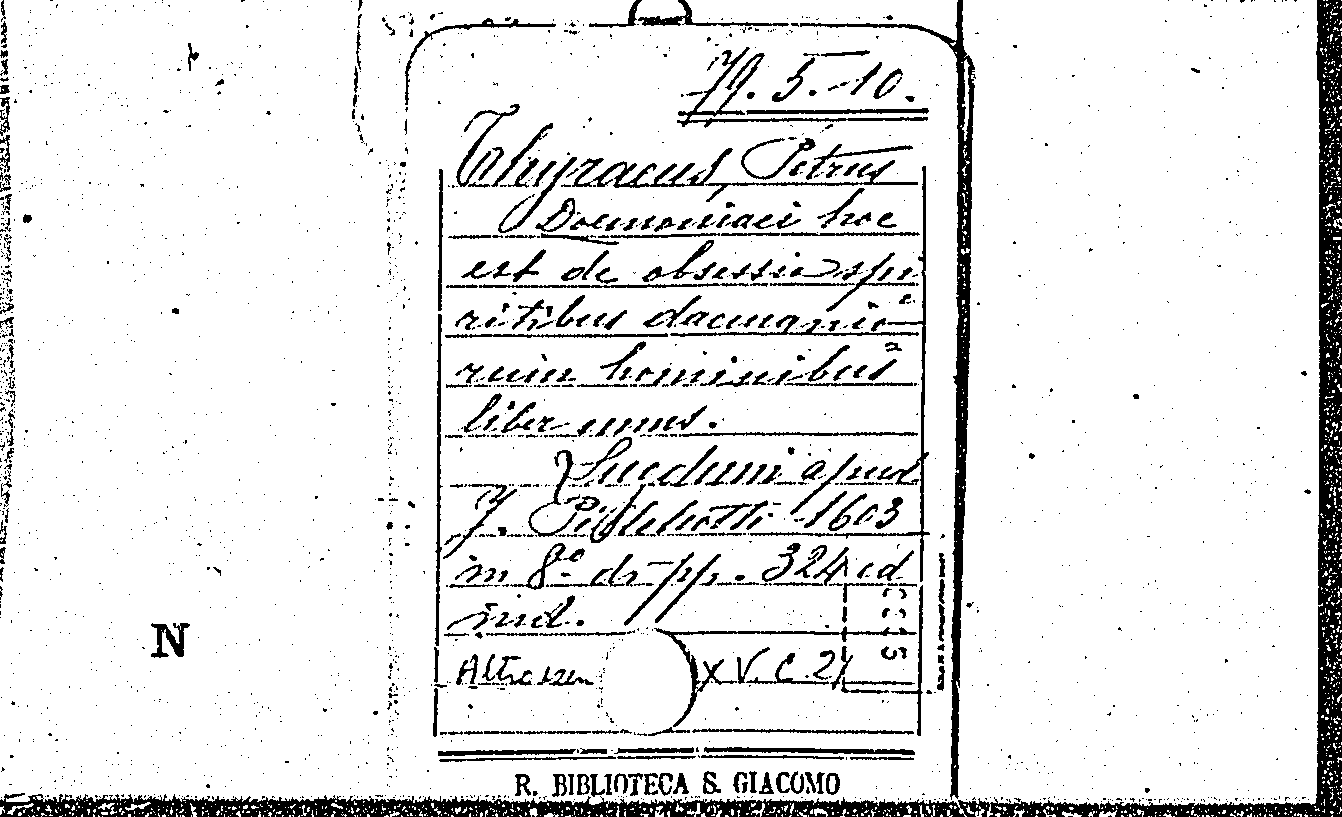 79.5.-10.
Thyraeus, Petrus
Daemoniaci hoc
est de obsessis spi
ritibus daemonio
rum hominibus
liber unus.
Lugduni apud
J. Pillehotte 1603
in 8° di pp. 324 ed
ind.
Altro XV. C. 21
N
R. BIBLIOTECA S. GIACOMO